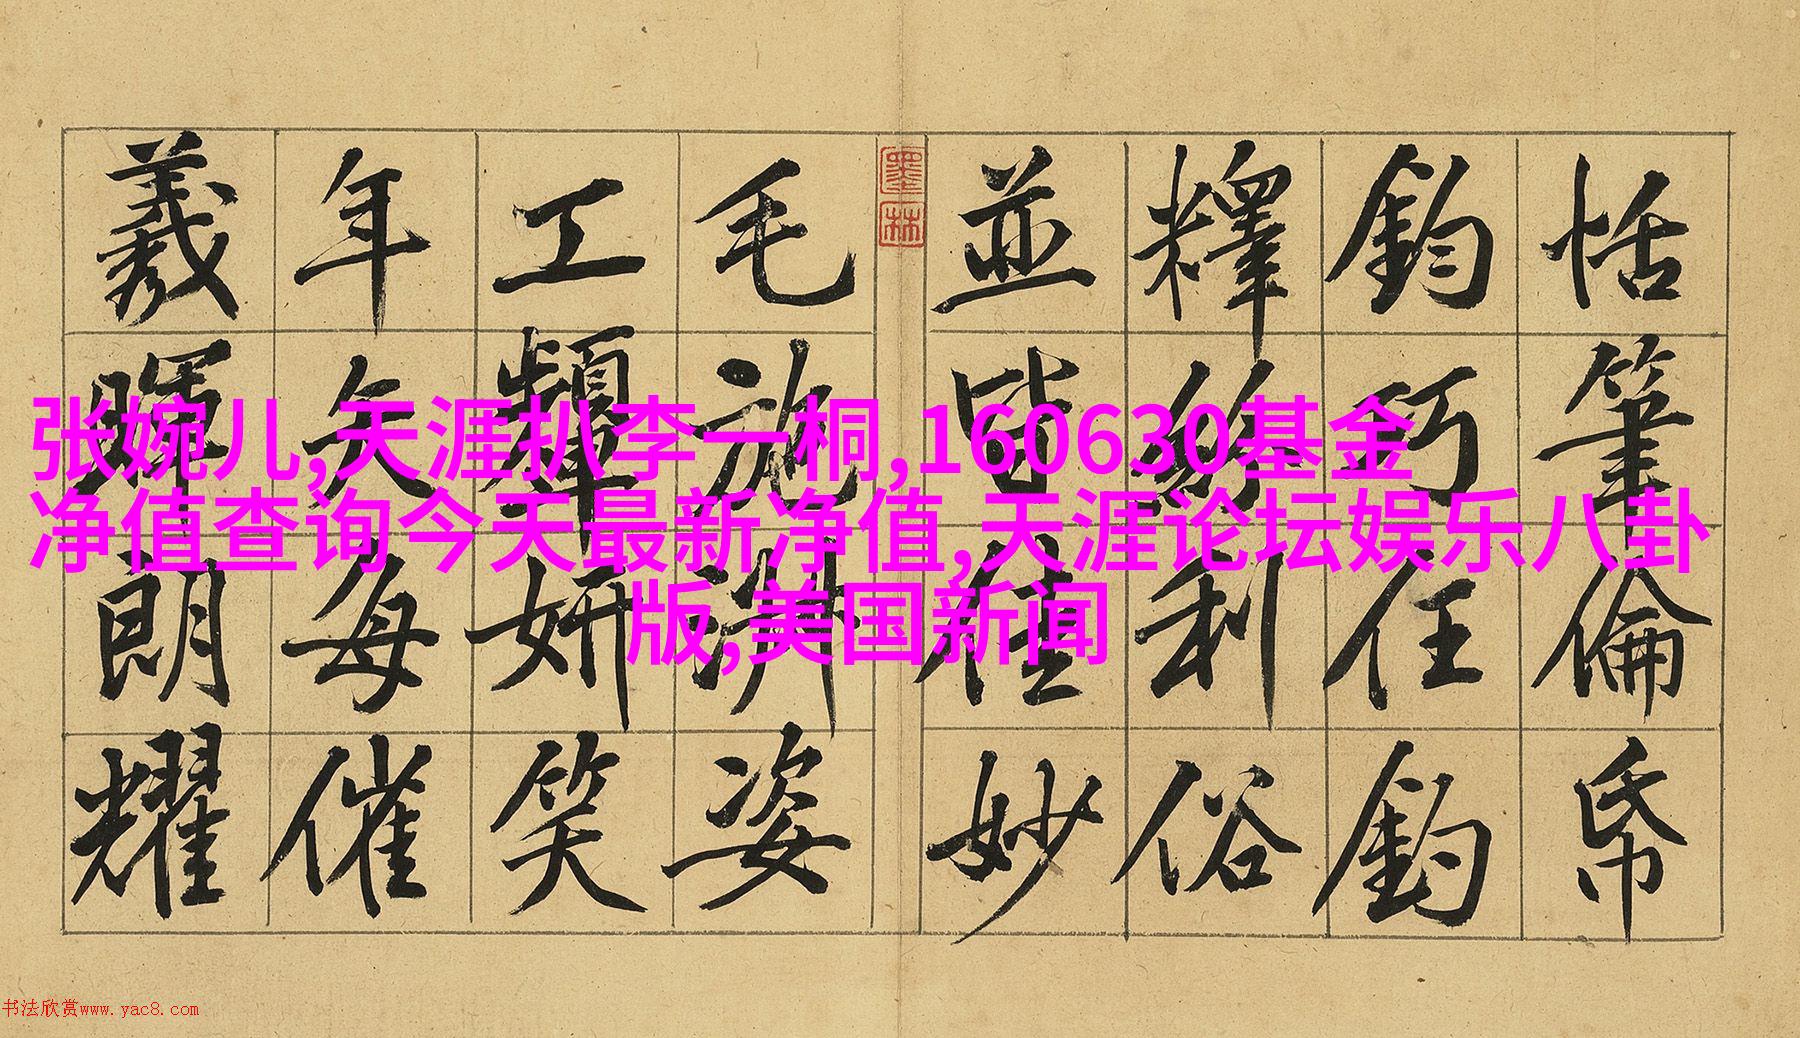 恬筆倫帋
鈞巧任釣
釋紛利俗
並皆佳妙
墨林
毛施淑姿
工顰妍笑
年矢每催
羲暉朗耀
张婉儿,天涯扒李一桐,160630基金
净值查询今天最新净值,天涯论坛娱乐八卦
版,美国新闻
书法欣赏www.yac8.com